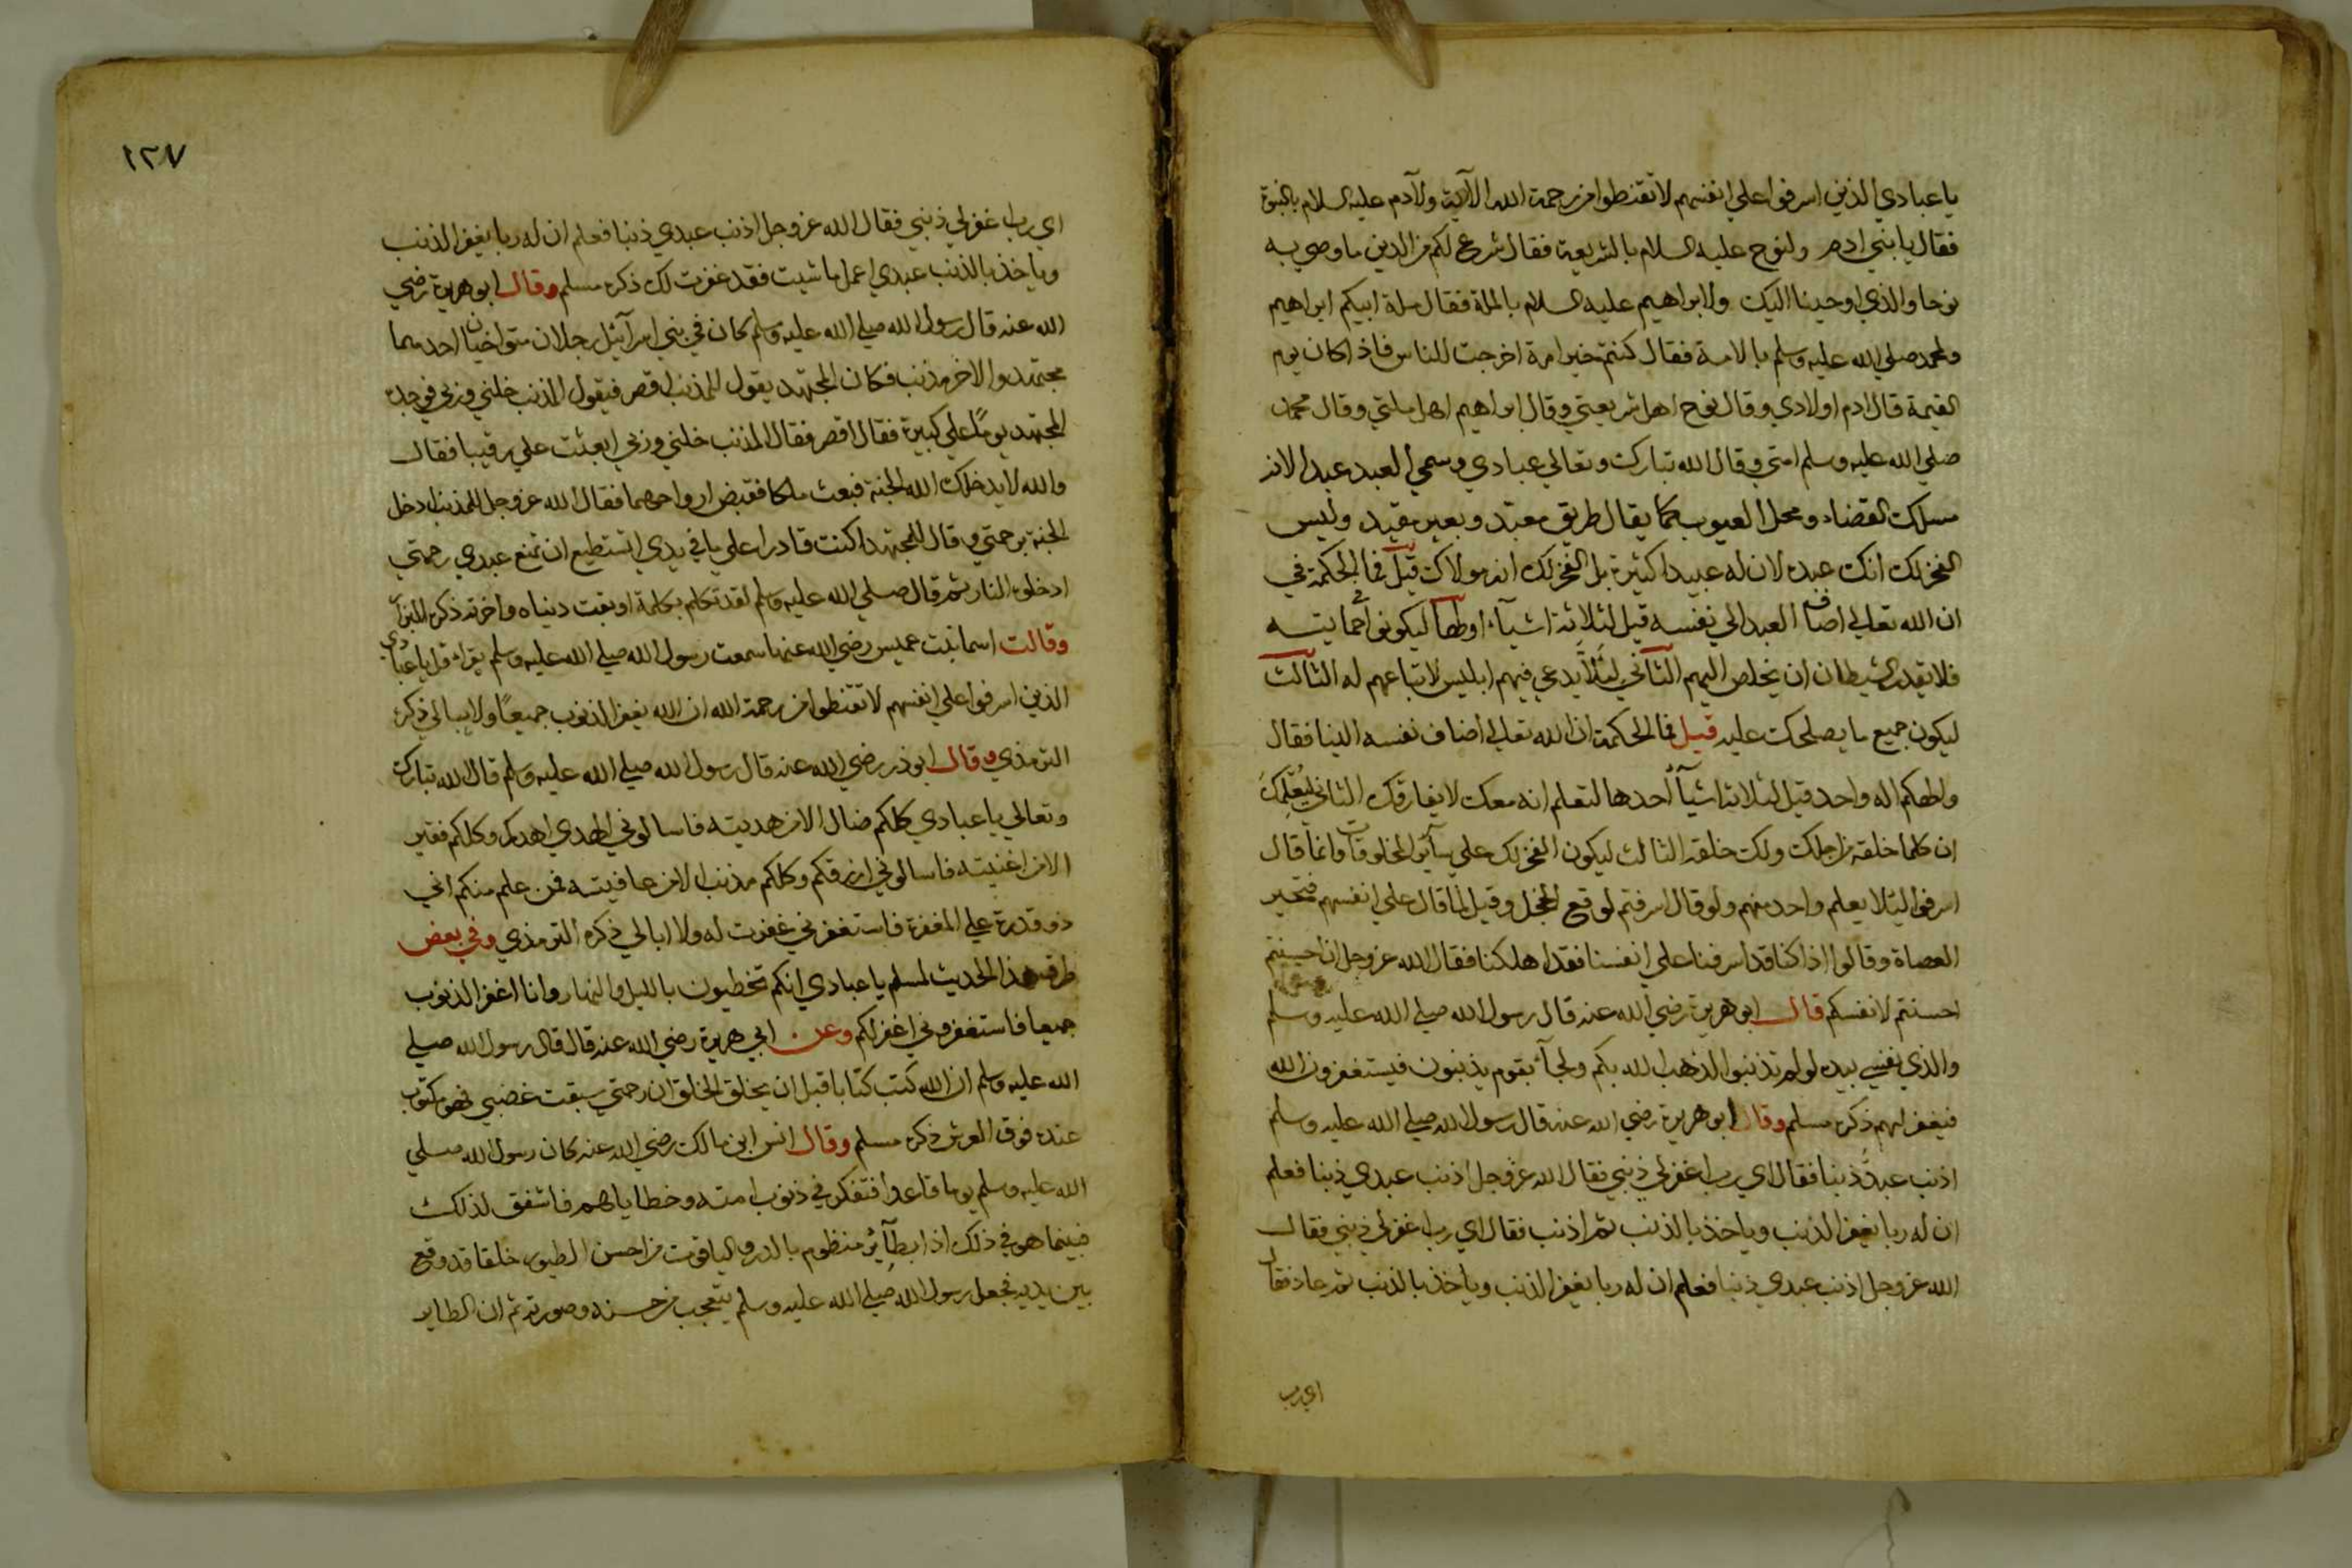 يا عبادي الذين اسرفوا علي انفسهم لا تقنطوا من رحمة الله الآية ولآدم عليه السلام بالبنوة
فقال يا بني ادم ولنوح عليه السلام بالشريعة فقال شرع لكم من الدين ما وصي به
نوحا والذي اوحينا اليك ولابراهيم عليه السلام بالملة فقال ملة ابيكم ابراهيم
ولمحمد صلي الله عليه وسلم بالامة فقال كنتم خير امة اخرجت للناس فاذا كان يوم
القيمة قال ادم اولادي وقال نوح اهل شريعتي وقال ابراهيم اهل ملتي وقال محمد
صلي الله عليه وسلم امتي وقال الله تبارك وتعالي عبادي وسمي العبد عبدا لانه
مسلك القضاء ومحل العيوب كما يقال طريق معبد وبعير مقيد وليس
الفخر لك انك عبده لان له عبيدا كثيرة بل الفخر لك انه مولاك قيل فما الحكمة في
ان الله تعالي اضاف العبد الي نفسه قيل لثلاثة اشياء اولها ليكونوا في حمايته
فلا يقدر الشيطان ان يخلص اليهم الثاني لئلا يدعي فيهم ابليس لاتباعهم له الثالث
ليكون جميع ما يصلحك عليه قيل فما الحكمة ان الله تعالي اضاف نفسه الينا فقال
والهكم اله واحد قيل لثلاثة اشيآء احدها لتعلم انه معك لا يفارقك الثاني ليعلمك
ان كلما خلقه من اجلك ولك خلقه الثالث ليكون الفخر لك علي سآئر المخلوقات وانما قال
اسرفوا ليئلا يعلم واحد منهم ولو قال اسرفتم لوقع الخجل وقيل لما قال علي انفسهم فتحير
العصاة وقالوا اذا كنا قد اسرفنا علي انفسنا فقد اهلكنا فقال الله عز وجل ان احسنتم
احسنتم لانفسكم قال ابو هريرة رضي الله عنه قال رسول الله صلي الله عليه وسلم
والذي نفسي بيده لو لم تذنبوا لذهب الله بكم ولجآء بقوم يذنبون فيستغفرون الله
فيغفر لهم ذكره مسلم وقال ابو هريرة رضي الله عنه قال رسول الله صلي الله عليه وسلم
اذنب عبد ذنبا فقال اي رب اغفر لي ذنبي فقال الله عز وجل اذنب عبدي ذنبا فعلم
ان له ربا يغفر الذنب وياخذ بالذنب ثم اذنب فقال اي رب اغفر لي ذنبي فقال
الله عز وجل اذنب عبدي ذنبا فعلم ان له ربا يغفر الذنب وياخذ بالذنب ثم عاد فقال
اي رب
١٢٧
اي رب اغفر لي ذنبي فقال الله عز وجل اذنب عبدي ذنبا فعلم ان له ربا يغفر الذنب
وياخذ بالذنب عبدي اعمل ما شيت فقد غفرت لك ذكره مسلم وقال ابو هريرة رضي
الله عنه قال رسول الله صلي الله عليه وسلم كان في بني اسرآئيل رجلان متواخيان احدهما
مجتهد والاخر مذنب فكان المجتهد يقول للمذنب اقصر فيقول المذنب خلني وربي فوجده
المجتهد يوما علي كبيرة فقال اقصر فقال المذنب خلني وربي ابعثت علي رقيبا فقال
والله لا يدخلك الله الجنة فبعث ملكا فقبض ارواحهما فقال الله عز وجل للمذنب ادخل
الجنة برحمتي وقال للمجتهد اكنت قادرا علي ما في يدي اتستطيع ان تمنع عبدي رحمتي
ادخلوه النار ثم قال صلي الله عليه وسلم لقد تكلم بكلمة اوبقت دنياه واخرته ذكره البزار
وقالت اسما بنت عميس رضي الله عنها سمعت رسول الله صلي الله عليه وسلم يقراء قل يا عبادي
الذين اسرفوا علي انفسهم لا تقنطوا من رحمة الله ان الله يغفر الذنوب جميعا ولا يبالي ذكره
الترمذي وقال ابو ذر رضي الله عنه قال رسول الله صلي الله عليه وسلم قال الله تبارك
وتعالي يا عبادي كلكم ضال الا من هديته فاسالوني الهدي اهدكم وكلكم فقير
الا من اغنيته فاسالوني ارزقكم وكلكم مذنب الا من عافيته فمن علم منكم اني
ذو قدرة علي المغفرة فاستغفرني غفرت له ولا ابالي ذكره الترمذي وفي بعض
طرق هذا الحديث لمسلم يا عبادي انكم تخطيون بالليل والنهار وانا اغفر الذنوب
جميعا فاستغفروني اغفر لكم وعن ابي هريرة رضي الله عنه قال قال رسول الله صلي
الله عليه وسلم ان الله كتب كتابا قبل ان يخلق الخلق ان رحمتي سبقت غضبي فهو مكتوب
عنده فوق العرش ذكره مسلم وقال انس ابن مالك رضي الله عنه كان رسول الله صلي
الله عليه وسلم يوما قاعدا فتفكر في ذنوب امته وخطاياهم فاشفق لذلك
فبينما هو في ذلك اذا بطآئر منظوم بالدر والياقوت من احسن الطيور خلقا قد وقع
بين يديه فجعل رسول الله صلي الله عليه وسلم يتعجب من حسنه وصورته ثم ان الطاير